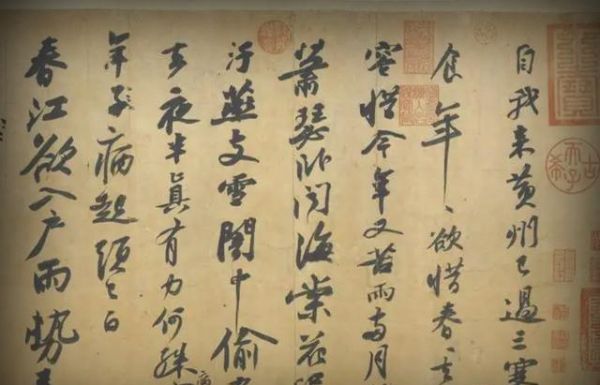 自我来黄州已過三寒
食年〻欲惜春〻
容惜今年又苦雨兩月
蕭瑟卧聞海棠花
汙燕支雪闇中偷
去夜半真有力何殊
年子病起頭已白
春江欲入户雨勢
古希天子